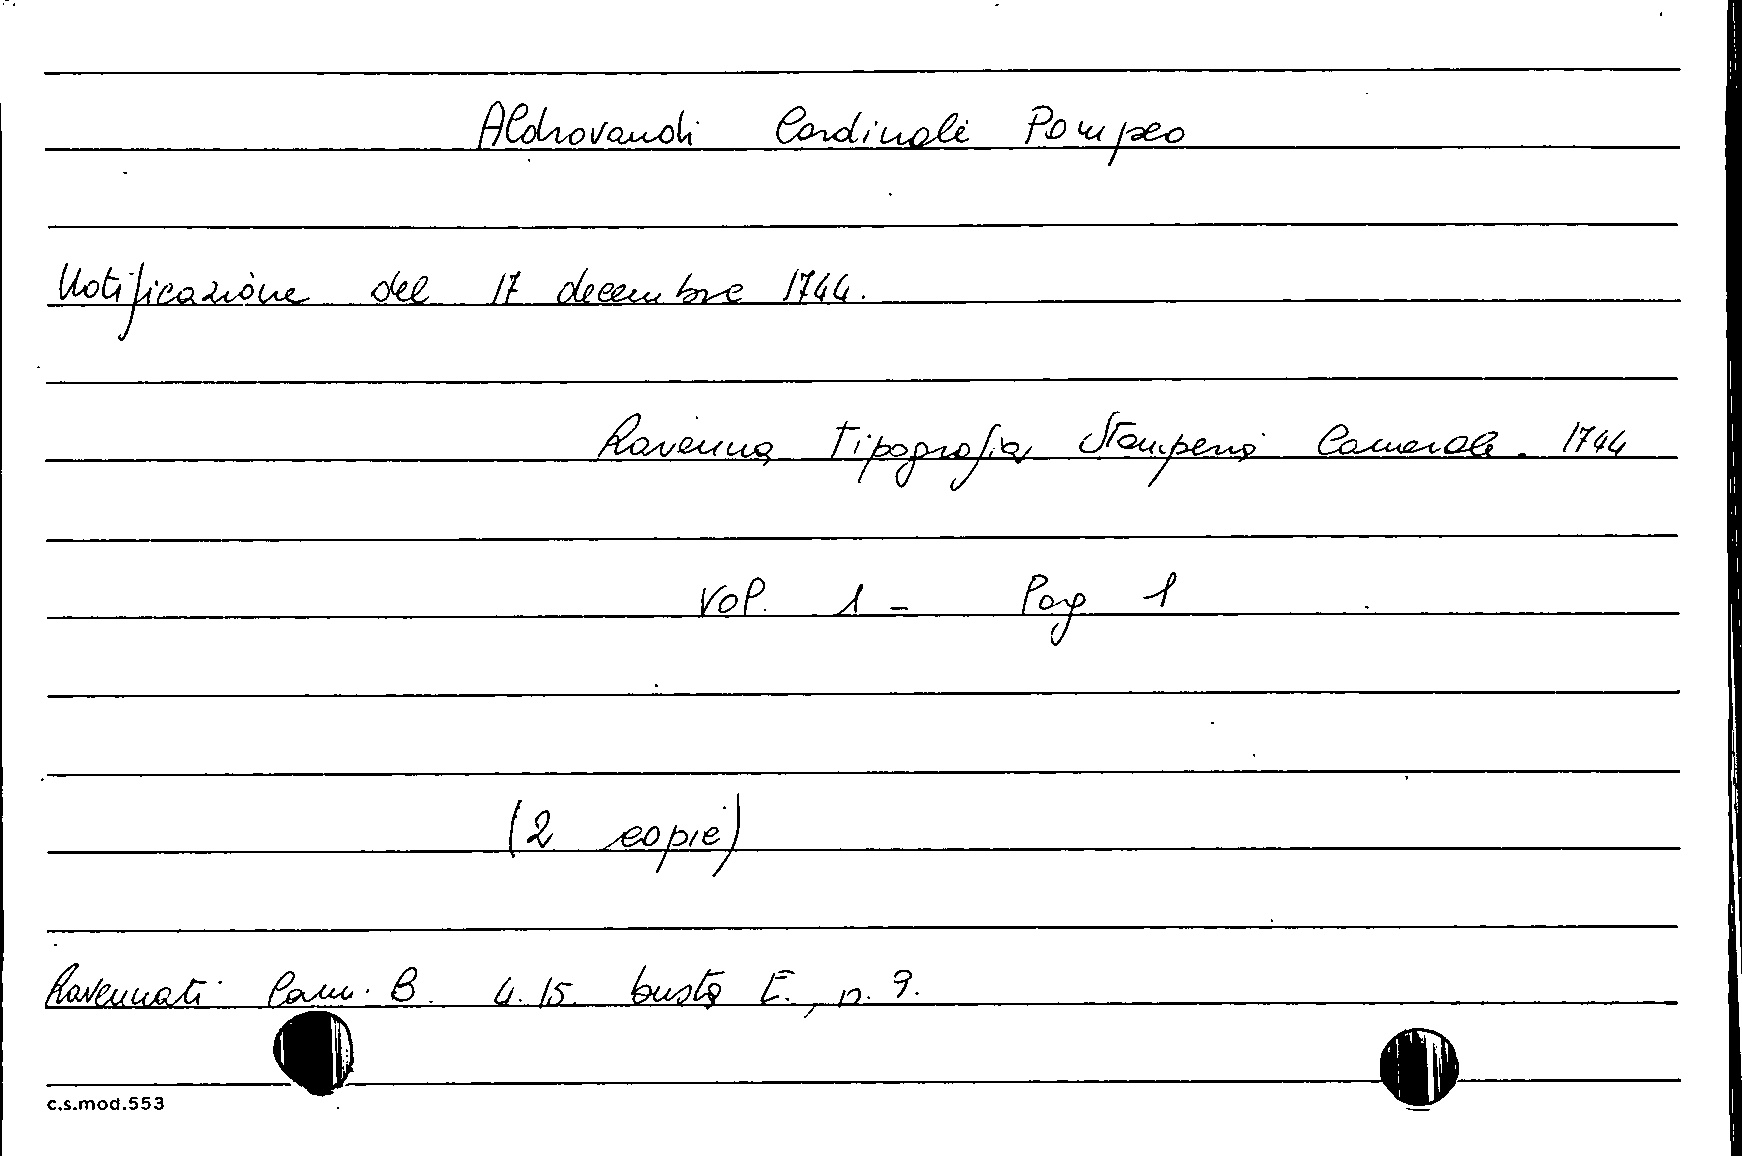 Aldrovandi Cardinale Pompeo
Notificazione del 17 decembre 1744.
Ravenna Tipografia Stamperia Camerale. 1744
Vol. 1 - Pag 1
(2 copie)
Ravennati Cam. B. 4. 15. busta E., n. 9.
c.s.mod.553